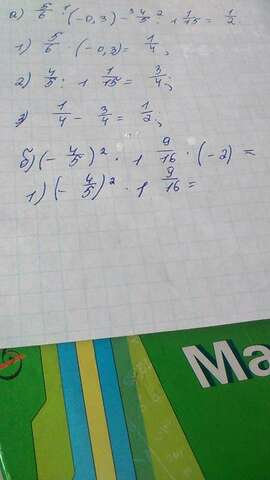 а) 5/6 ¹· (-0,3) - ³ 4/5 :² 1 1/15 = 1/2.
1) 5/6 · (-0,3) = 1/4;
2) 4/5 : 1 1/15 = 3/4;
3) 1/4 - 3/4 = 1/2;
б) (- 4/5)² · 1 9/16 · (-2) =
1) (- 4/5)² · 1 9/16 =
Ма